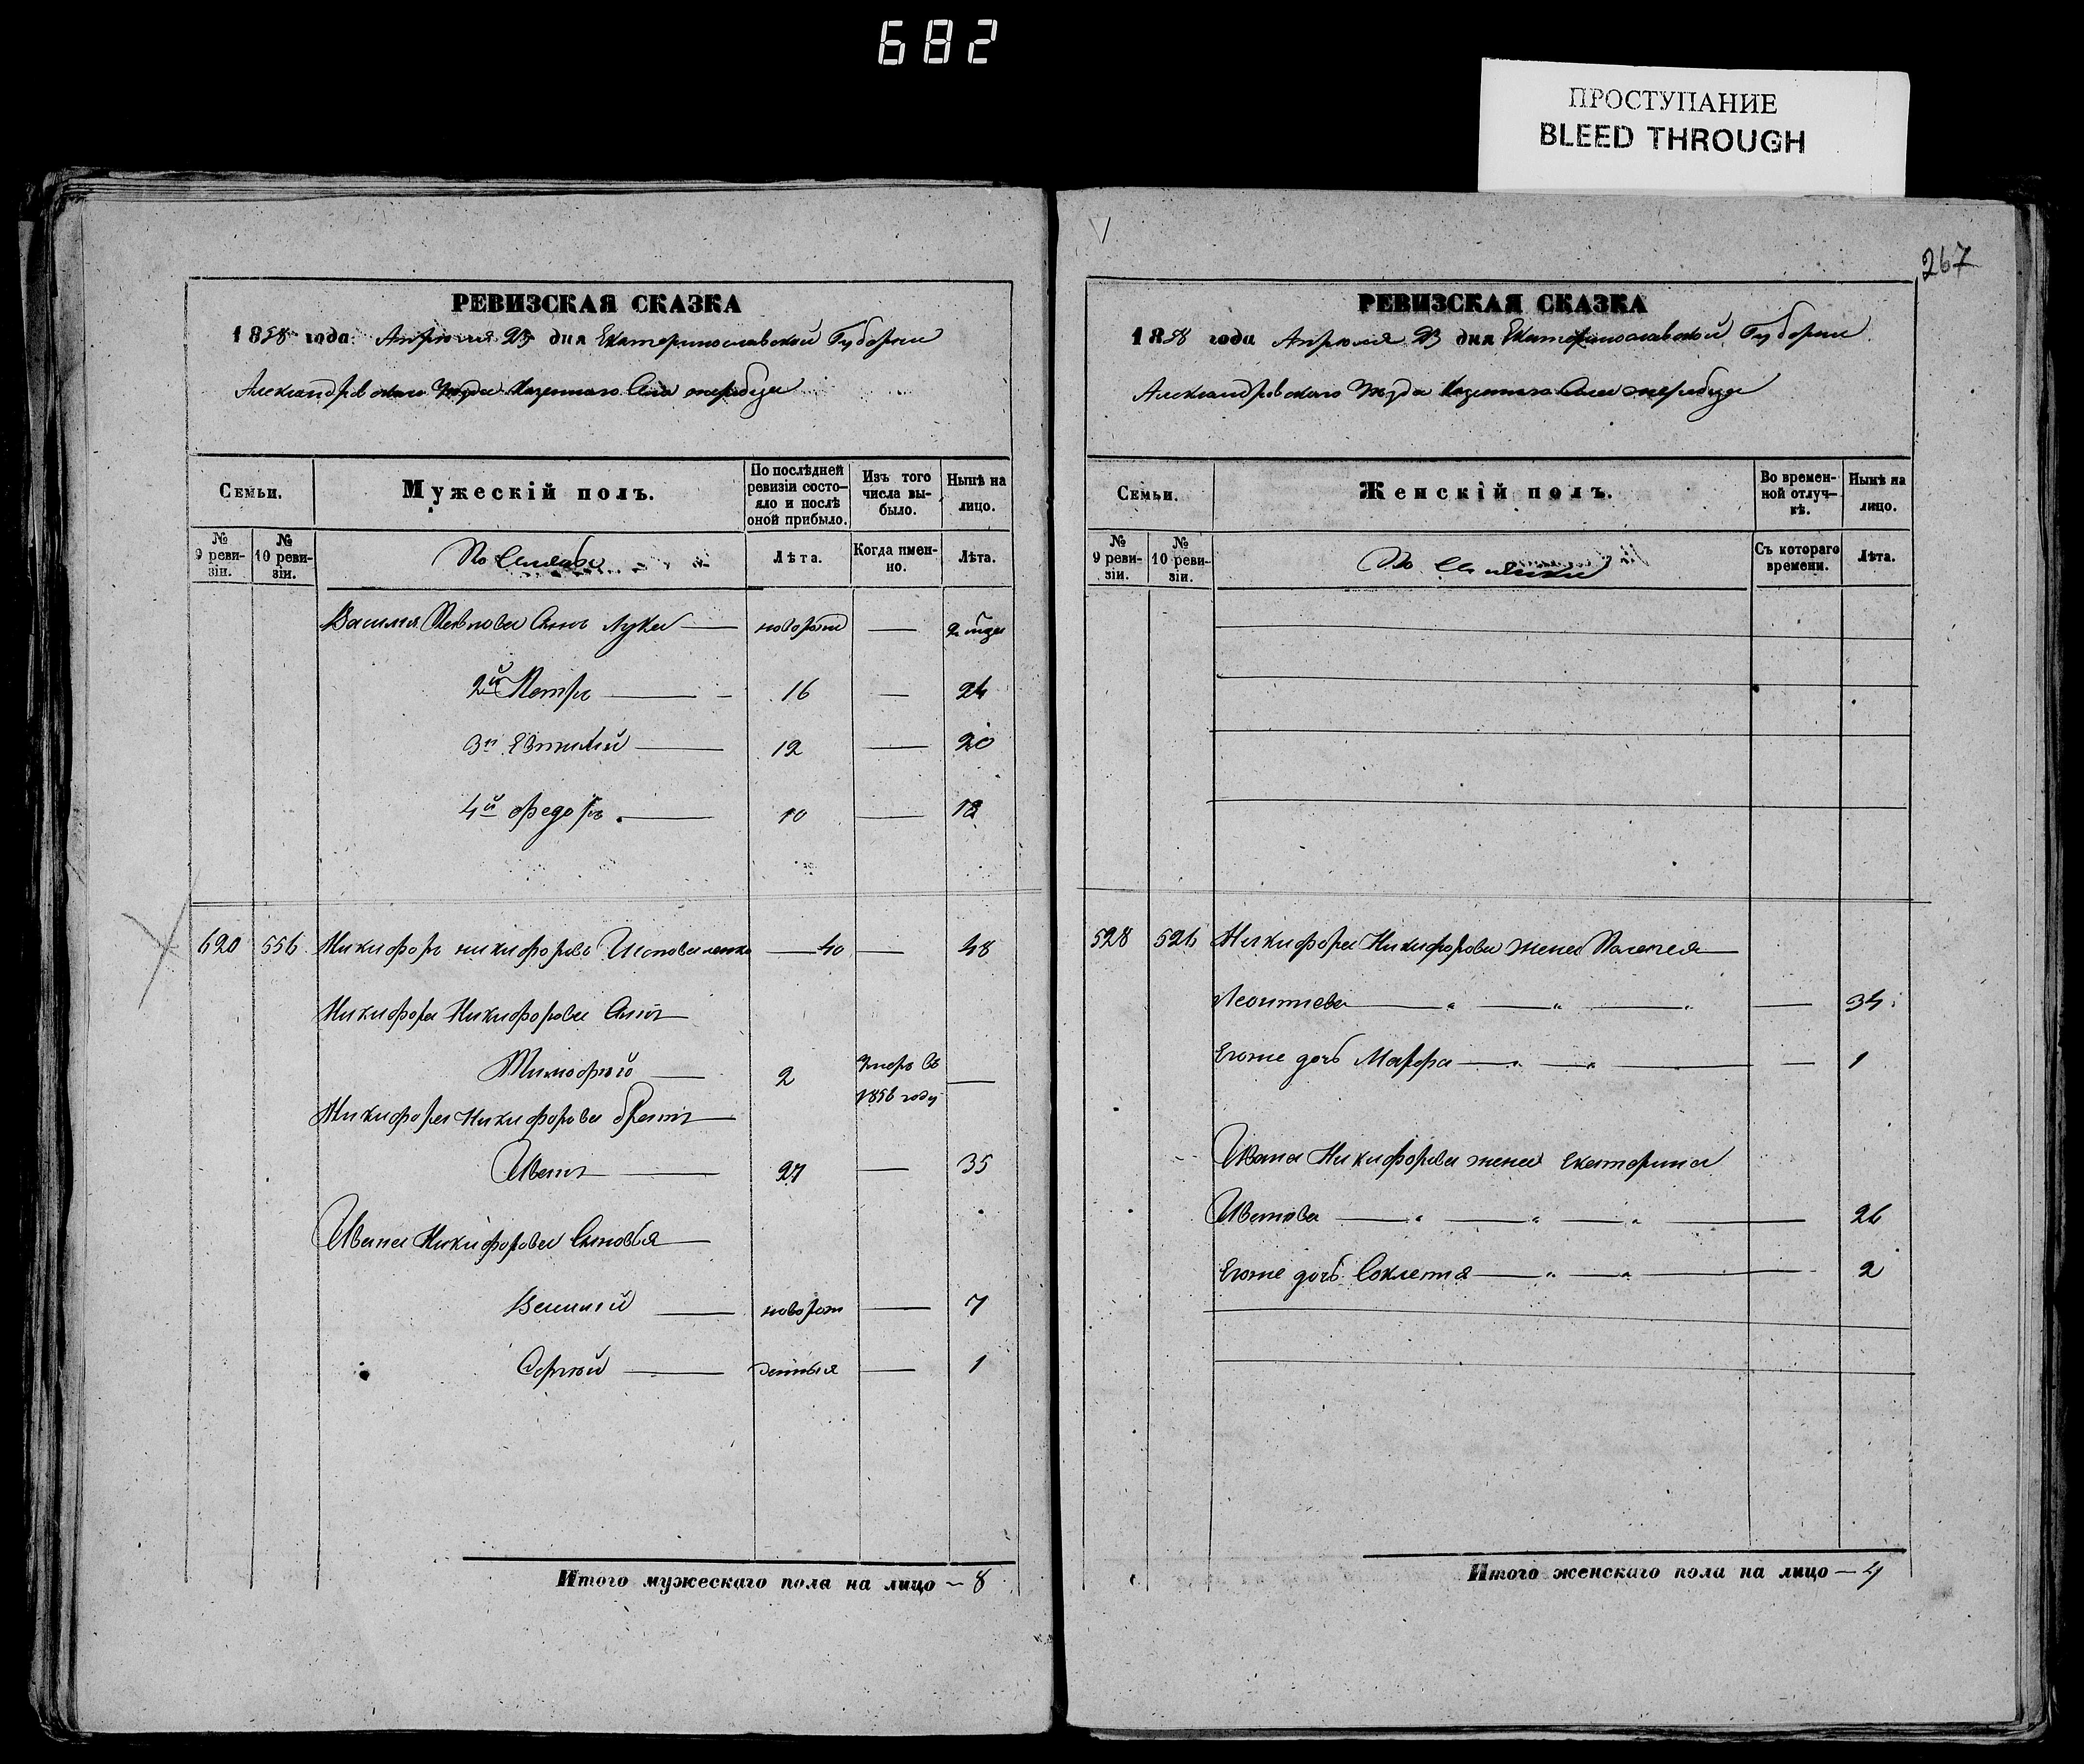 682
ПРОСТУПАНИЕ
BLEED THROUGH
267
РЕВИЗСКАЯ СКАЗКА
1858 года Апреля 23 дня Екатеринославской Губернии
Александровского Уезда Казенного Села
Семьи.
Мужескій полъ.
По послѣдней ревизіи состояло и послѣ оной прибыло.
Изъ того числа выбыло.
Нынѣ на лицо.
№ 9 ревизіи.
№ 10 ревизіи.
Лѣта.
Когда именно.
Лѣта.
Василия сынъ Лука — новорож —
2й Петръ — 16 — 24
3й Евтихий — 12 — 20
4й Федоръ — 10 — 18
620 556 Никифоръ Никифоровъ — 40 — 48
Никифора Никифорова сынъ
Тимофей — 2 умеръ въ 1856 году —
Никифора Никифорова братъ
Иванъ — 27 — 35
Ивана Никифорова сыновья
Василий — новорож — 7
Сергей — денныя — 1
Итого мужескаго пола на лицо — 8
РЕВИЗСКАЯ СКАЗКА
1858 года Апреля 23 дня Екатеринославской Губернии
Александровского Уезда Казенного Села
Семьи.
Женскій полъ.
Во временной отлучкѣ.
Нынѣ на лицо.
№ 9 ревизіи.
№ 10 ревизіи.
Съ котораго времени.
Лѣта.
528 Никифора Никифорова жена Пелагея
Леонтиева — " — " — " — 34
Егоже дочь Марфа — " — " — 1
Ивана Никифорова жена Екатерина
Иванова — " — " — " — 26
Егоже дочь — " — " — 2
Итого женскаго пола на лицо — 4